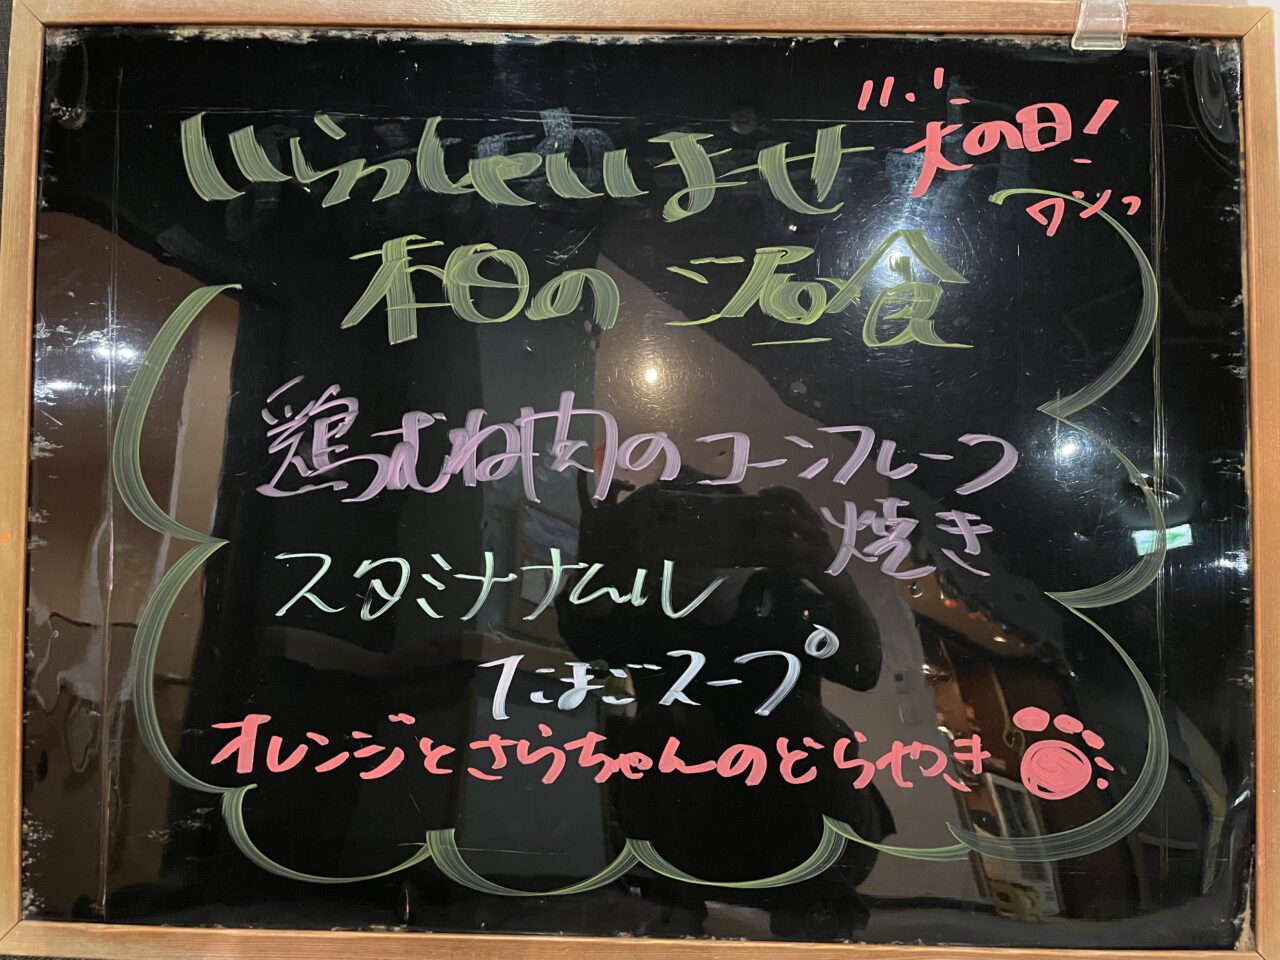 いらっしゃいませ
犬の日!
ワンっ
本日のご昼食
鶏むね肉のコーンフレーク
焼き
スタミナナムル
たまごスープ
オレンジとさらちゃんのどらやき